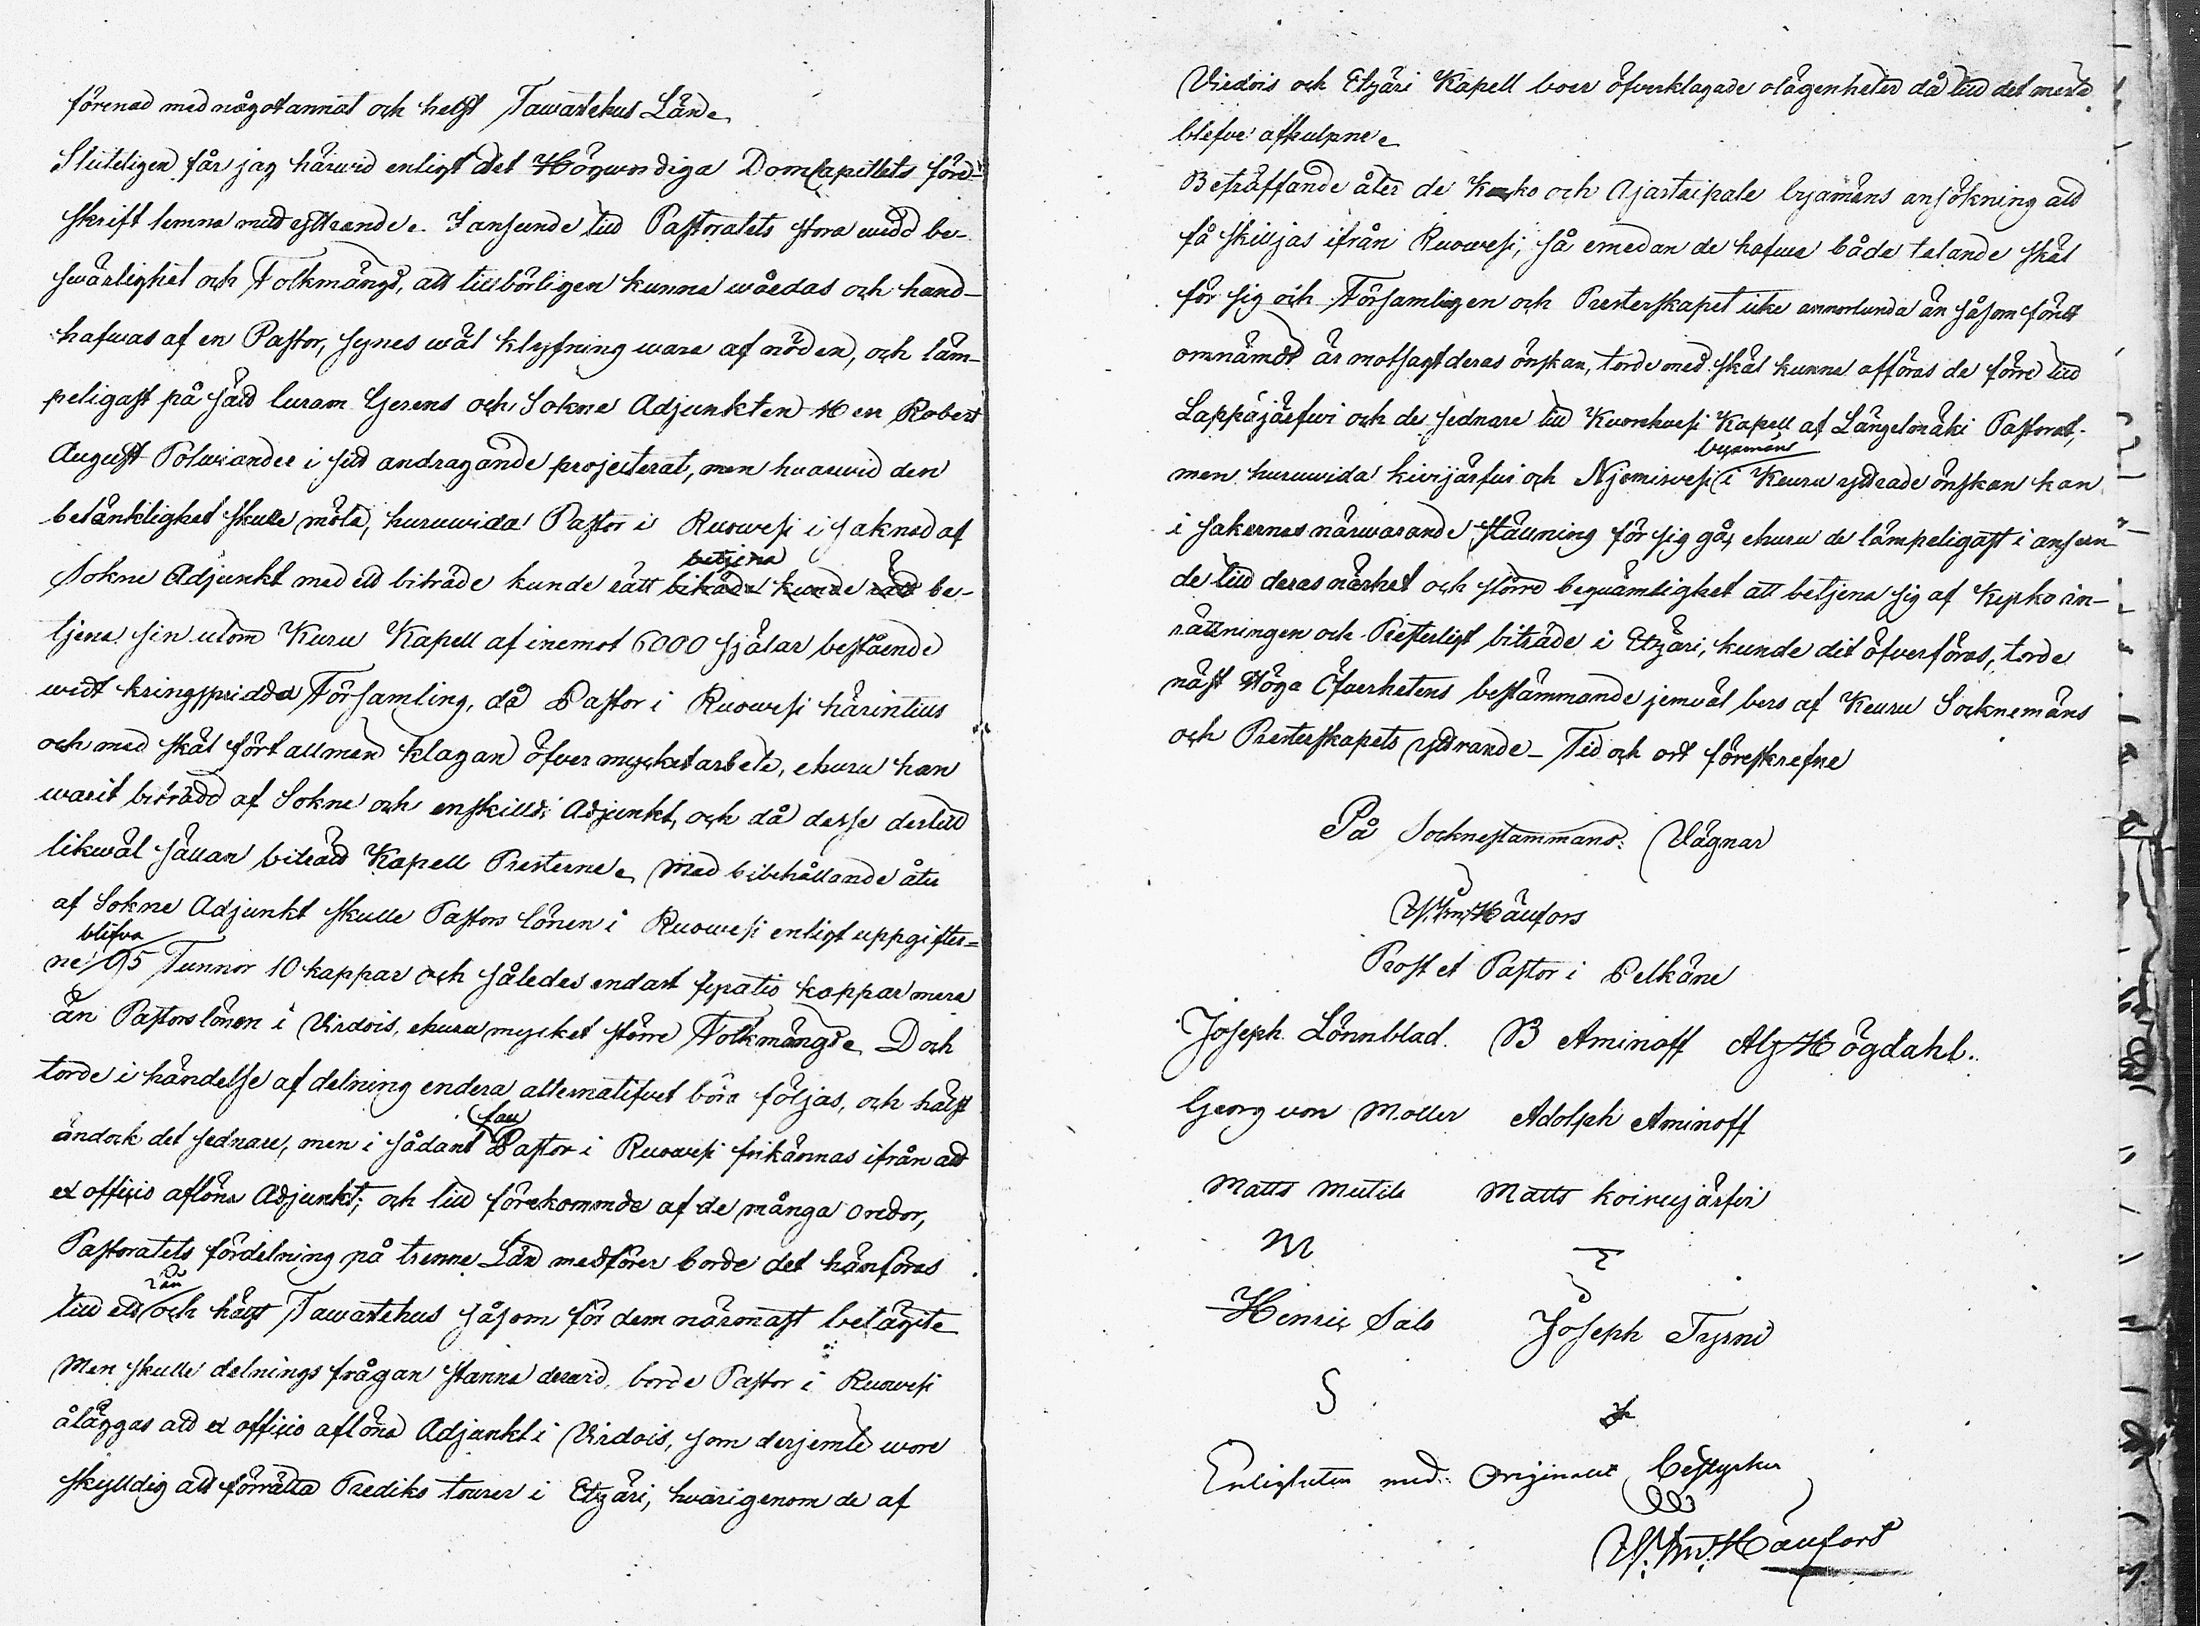 förenad med något annat och helst Tawastehus Län.
Sluteligen får jag härwid enligt det Högwördiga DomCapitlets före-
skrift lemna mitt yttrande. I anseende till Pastoratets stora widd be-
swärlighet och Folkmängd, att tillbörligen kunna wårdas och hand-
hafwas af en Pastor, synes wäl klyfning wara af nöden, och läm-
peligast på sätt Gerens och Sokne Adjunkten Herr Robert
August Polviander i sitt andragande projecterat, men hvarvid den
betänklighet skulle möta, huruwida Pastor i Ruowesi i saknad af
Sokne Adjunkt med ett biträde kunde rätt biträda kunde rätt be-
betjena
tjena sin utom Kuru Kapell af inemot 6000 själar bestående
widt kringspridda Församling, då Pastor i Ruowesi härintills
och med skäl fört allmen klagan öfver mycket arbete, ehuru han
warit biträdd af Sokne och enskilld Adjunkt, och då desse dertill
likwäl sällan biträdt Kapell Presterne. Med bibehållande åter
af Sokne Adjunkt skulle Pastors lönen i Ruowesi enligt uppgifter-
blifva
ne 95 Tunnor 10 kappar och således endast fyratio kappar mera
än Pastorslönen i Virdois, ehuru mycket större Folkmängd. Doch
torde i händelse af delning endera alternatifvet böra följas, och hälst
fall
ändock det sednare, men i sådant Pastor i Ruowesi frikännas ifrån att
ex officio aflöna Adjunkt; och till förekommde af de många oredor,
Pastoratets fördelning på trenne Län medförer borde det hänföras
Län
till ett och hälst Tawastehus såsom för dem närmast belägit
Men skulle delnings frågan stanna derwid, borde Pastor i Ruowesi
åläggas att ex officio aflöna Adjunkt i Virdois, som derjemte wore
skylldig att förrätta Prediko tourer i Etzäri, hvarigenom de af
Virdois och Etzäri Kapell boer öfverklagade olägenheter då till det mesta
blefve afhulpne.
Beträffande åter de och byamäns ansökning att
få skilljas ifrån Ruowesi, så emedan de hafwa både talande skäl
för sig och Församligen och Presterskapet icke annorlunda än såsom förut
omnämdt är motsagt deras önskan, torde med skäl kunna afföras de förre till
Lappäjärfwi och de sednare till Kuorehvesi Kapell af Längelmäki Pastorat;
byamäns
men huruwida kivijärfvi och Njemisvesi i Keuru yttrade önskan kan
i sakernas närwarande ställning för sig gå, ehuru de lämpeligast i anseen-
de till deras närhet och större beqvämlighet att betjena sig af Kyrko in-
rättningen och Presterligt biträde i Etzäri, kunde dit öfverföras, torde
näst Höga Öfverhetens bestämmande jemväl bero af Keuru Socknemäns
och Presterskapets yttrande – Tid och ort föreskrefne
På Socknestammans Vägnar
Hällfors
Prost et Pastor i Pelkäne
Joseph Lönnblad. B Aminoff Alx Högdahl.
Georg von Moller Adolph Aminoff
Matts Mutila Matts koirujärfvi
M
Henric Salo Joseph Tyrni
S
Enligheten med Originalet bestyrker
Hällfors